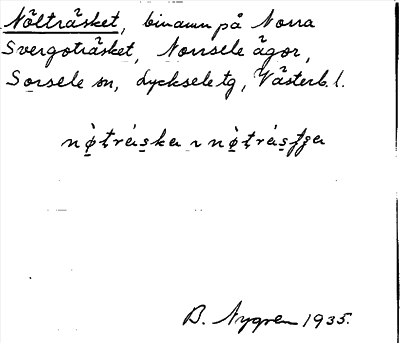 Nölträsket, binamn på Norra
Svergoträsket, Norrsele ägor,
Sorsele sn, Lycksele tg, Västerb. l.
B. Nygren 1935.